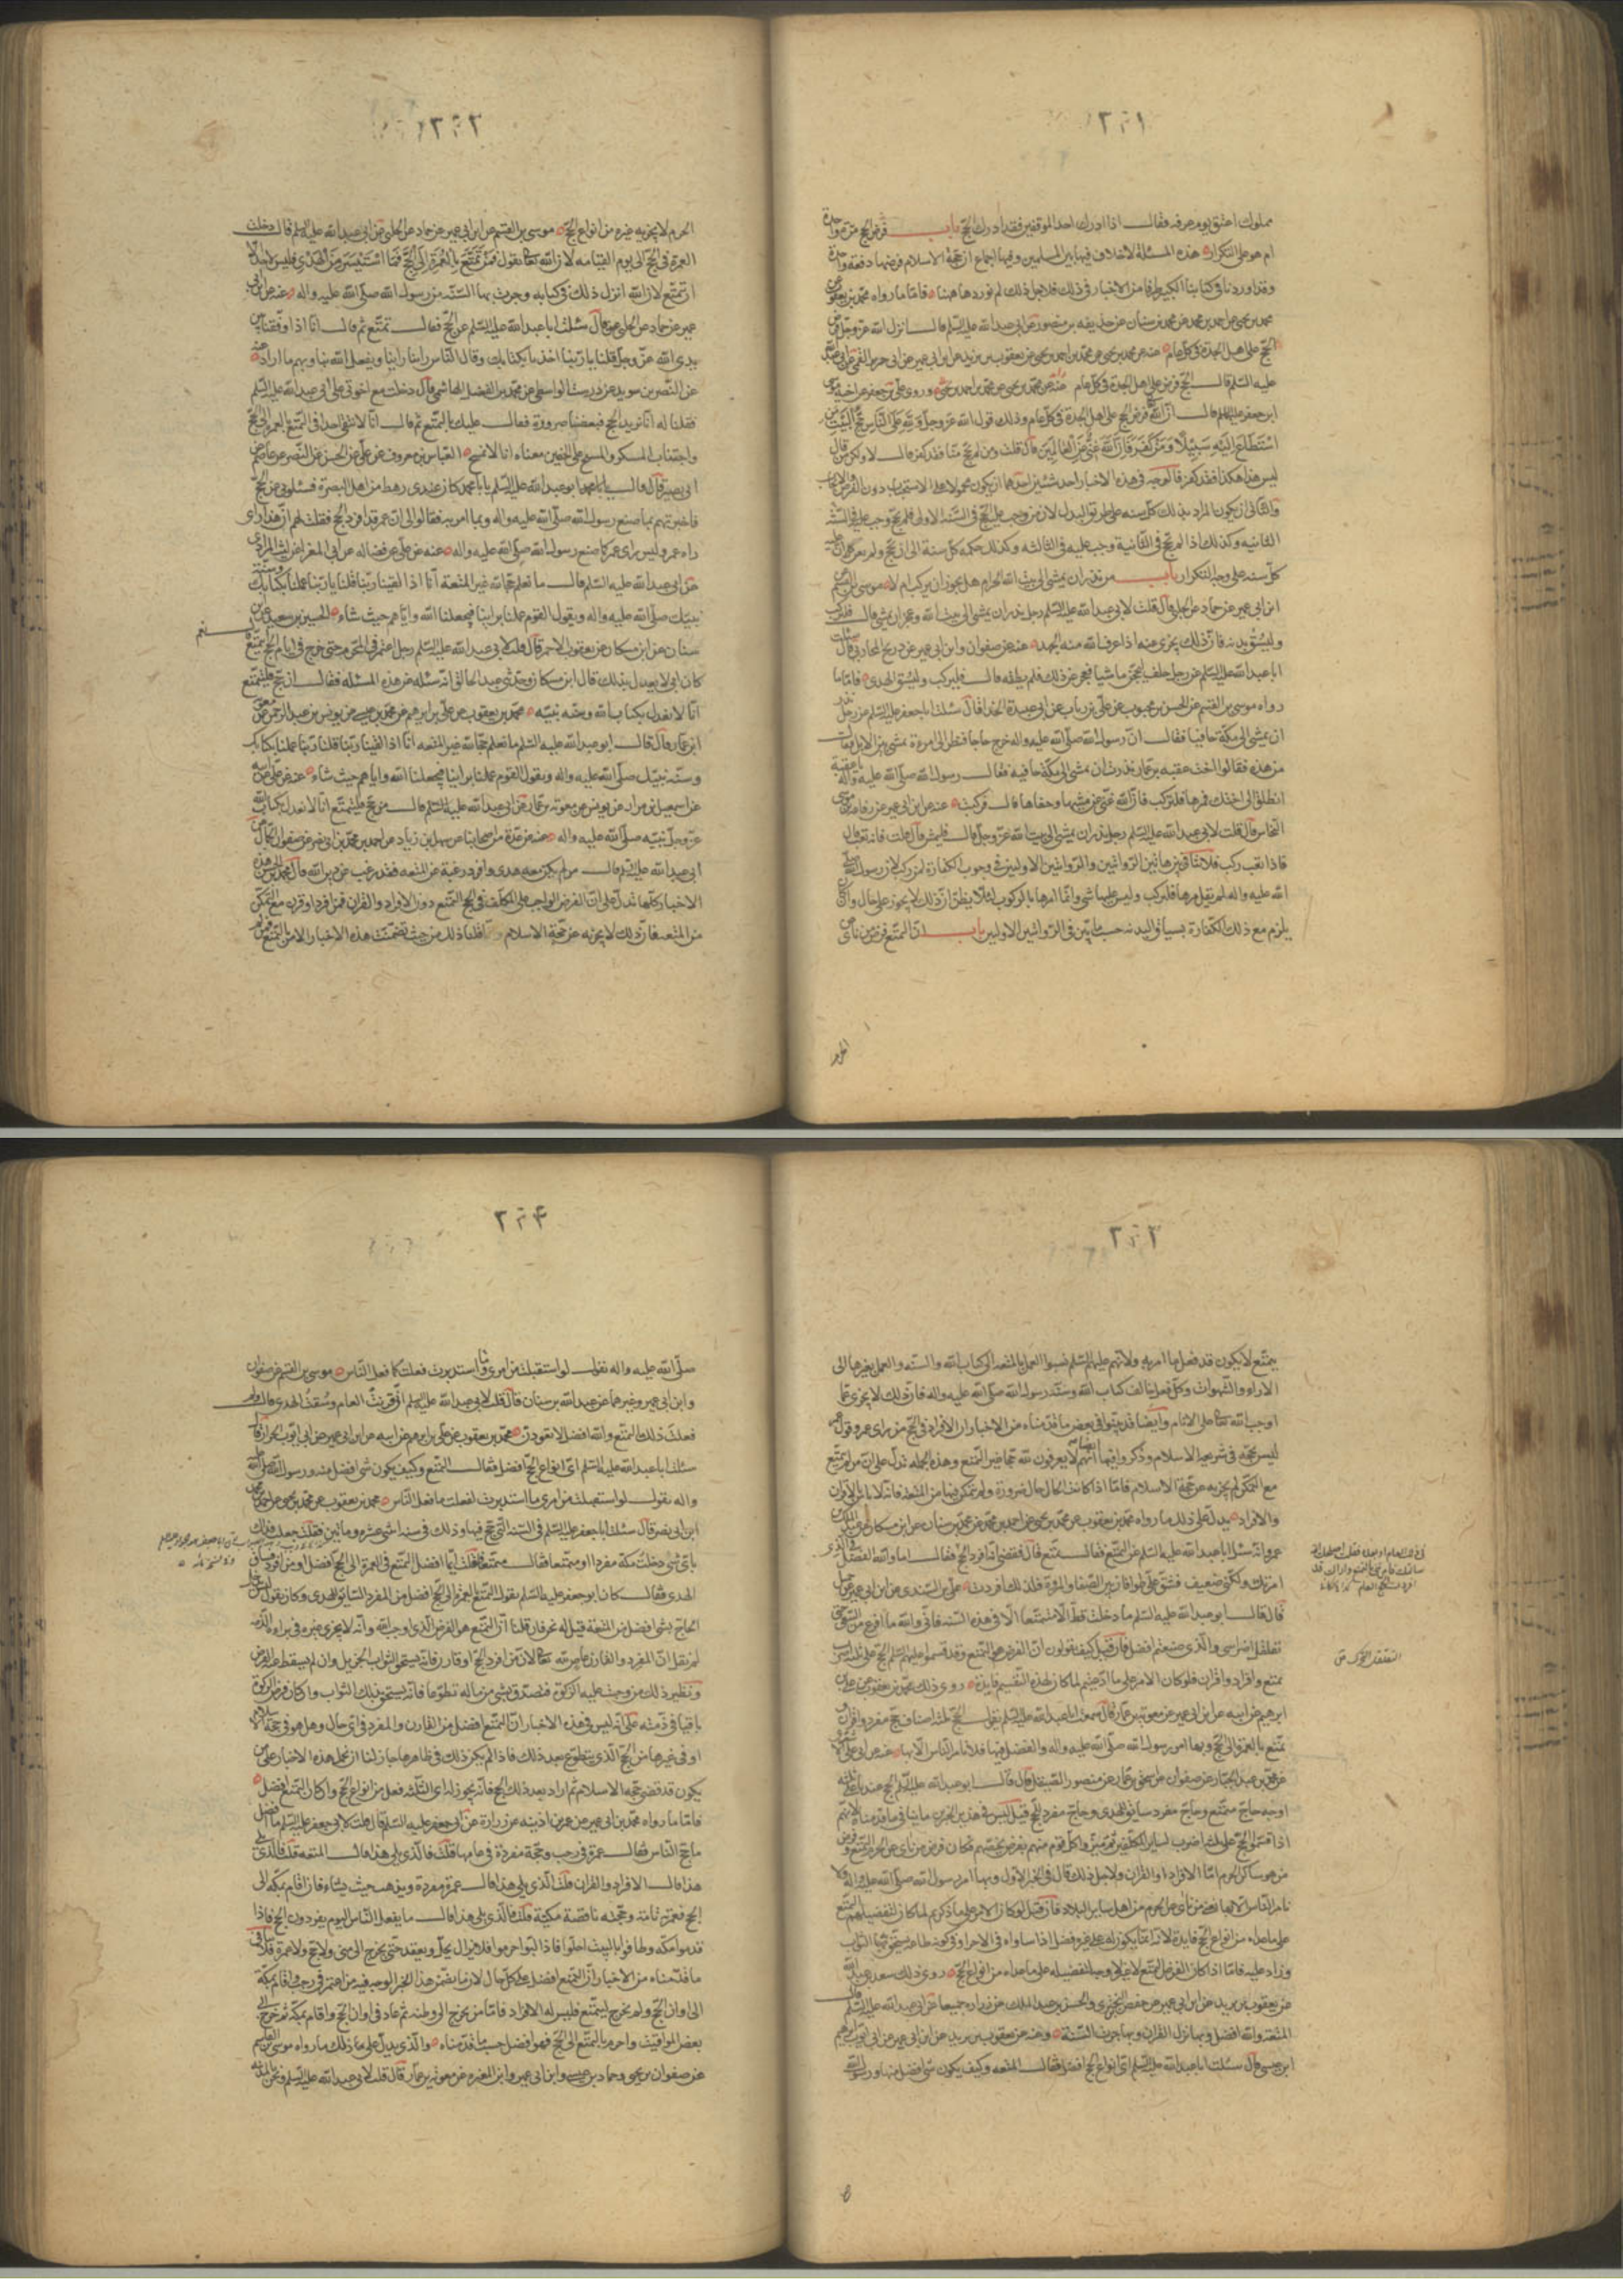 ٢٠١
مملوك اعتق يوم عرفه فقال اذا ادرك احد الموقفين فقد ادرك الحج باب فرض الحج مرّة واحدة
ام هو على التكرار هذه المسئلة لا خلاف فيها بين المسلمين وفيها اجماع ان حجة الاسلام فرضها دفعة واحدة
وقد اوردنا فى كتابنا الكبير طرفا من الاخبار فى ذلك فلاجل ذلك لم نوردها هٰهنا فامّا ما رواه محمّد بن يعقوب عن
محمد بن يحيى عن احمد بن محمد عن محمد بن سنان عن حذيفه بن منصور عن ابى عبد الله عليه السّلم قال انزل الله عزّ وجلّ فرض
الحجّ على اهل الجدة فى كلّ عام عنه عن محمد بن يحيى عن محمّد بن احمد بن يحيى عن يعقوب بن يزيد عن ابن ابى عمير عن ابى جرير القمى عن ابى عبد الله
عليه السّلم قال الحجّ فرض على اهل الجدة فى كلّ عام وروى علىّ بن جعفر عن اخيه موسى
ابن جعفر عليهم السلم قال انّ الله فرض الحج على اهل الجدة فى كلّ عام وذلك قول الله عزّ وجلّ وَلِلّهِ عَلَى النَّاسِ حِجُّ الْبَيْتِ مَنِ
اسْتَطَاعَ اِلَيْهِ سَبِيلًا وَمَنْ كَفَرَ فَاِنَّ اللَّهَ غَنِىٌّ عَنِ الْعَالَمِينَ قال قلت ومن لم يحج منّا فقد كفر قال لا ولكن من قال
ليس هذا هكذا فقد كفر فالوجه فى هذه الاخبار احد شيئين احدهما ان يكون محمولا على الاستحباب دون الفرض والايجاب
والثانى ان يكون المراد بذلك كلّ سنه على طريق البدل لان من وجب عليه الحجّ فى السّنة الاولى فلم يحجّ وجب عليه فى السّنة
الثانيه وكذلك اذا لم يحجّ فى الثّانية وجب عليه فى الثالثه وكذلك حكمه كلّ سنة الى ان يحجّ ولم يعن ان عليه
كلّ سنه على وجه التكرار باب من نذر ان يمشى الى بيت الله الحرام هل يجوز ان يركب ام لا موسى بن القسم عن
ابن ابى عمير عن حماد عن الحلبى قال قلت لابى عبد الله عليه السّلم رجل نذر ان يمشى الى بيت الله وعجز ان يمشى قال فليركب
وليسُق بدنه فان ذلك يجزى عنه اذا عرف الله منه الجهد عنه عن صفوان وابن ابى عمير عن ذريح المحاربى قال سئلت
ابا عبد الله عليه السّلم عن رجل حلف ليحجّنّ ماشيا فعجز عن ذلك فلم يطقه قال فليركب وليسق الهدى فامّا ما
رواه موسى بن القسم عن الحسن بن محبوب عن علىّ بن رئاب عن ابى عبيدة الحذا قال سئلت ابا جعفر عليه السّلم عن رجل نذر
ان يمشى الى مكّة حافيا فقال انّ رسول الله صلّى الله عليه واله خرج حاجا فنظر الى امرءة تمشى بين الابل فقال
من هذه فقالوا اخت عقبه بن عامر نذرت ان تمشى الى مكّة حافيه فقال رسول الله صلّى الله عليه واله يا عقبة
انطلق الى اختك فمرها فلتركب فان الله غنىّ عن مشيها وحفاها قال فركبت عنه عن ابن ابى عمير عن رفاعه بن موسى
النخّاس قال قلت لابى عبد الله عليه السّلم رجل نذر ان يمشى الى بيت الله عزّ وجلّ قال فليمش قال قلت فانه تعب قال
فاذا تعب ركب فلا تنافى بين هاتين الرّوايتين والرّوايتين الاوليين فى وجوب الكفارة لمن ركب لان رسول الله صلّى
الله عليه واله لم يقل مرها فلتركب وليس عليها شى وانّما امرها بالركوب لئلّا يظنّ انّ ذلك لا يجوز على حال وان كان
يلزم مع ذلك الكفّارة بسياق البدنه حسب ما بيّن فى الرّوايتين الاوليين باب انّ التمتّع فرض من نأى عن
الحرم
٢٠٢
الحرم لا يجزيه غيره من انواع الحجّ موسى بن القسم عن ابن ابى عمير عن حماد عن الحلبى عن ابى عبد الله عليه السلم قال دخلت
العمرة فى الحجّ الى يوم القيامه لان الله تعالى يقول فَمَنْ تَمَتَّعَ بِالْعُمْرَةِ اِلَى الْحَجِّ فَمَا اسْتَيْسَرَ مِنَ الْهَدْىِ فليس لاحد الّا
ان يتمتّع لان الله انزل ذلك فى كتابه وجرت بها السّنّة من رسول الله صلّى الله عليه واله عنه عن ابن ابى
عمير عن حماد عن الحلبى قال سئلت ابا عبد الله عليه السّلم عن الحجّ فقال تمتّع ثم قال انّا اذا وقفنا بين
يدى الله عزّ وجلّ قلنا يا ربّنا اخذنا بكتابك وقال النّاس راينا راينا ويفعل الله بنا وبهم ما اراد عنه
عن النّضر بن سويد عن درست الواسطى عن محمّد بن الفضل الهاشمى قال دخلت مع اخوتى على ابى عبد الله عليه السّلم
فقلنا له انّا نريد الحج فبعضنا صرورة فقال عليك بالتمتّع ثم قال انّا لا نتّقى احدا فى التمتّع بالعمرة الى الحجّ
واجتناب المسكر والمسح على الخفين معناه انا لا نمسح العبّاس بن معروف عن علىّ عن الحسن عن النّضر عن عاصم عن
ابى بصير قال قال لى ابو عبد الله عليه السّلم يا با محمد كان عندى رهط من اهل البصرة فسئلونى عن الحجّ
فاخبرتهم بما صنع رسول الله صلّى الله عليه واله وبما امر به فقالوا لى ان عمر قد افرد الحجّ فقلت لهم انّ هذا راى
راه عمر وليس راى عمر كما صنع رسول الله صلّى الله عليه واله عنه عن علىّ عن فضاله عن ابى المغرا عن ليث المرادى
عن ابى عبد الله عليه السّلم قال ما نعلم حجّا لله غير المتعة انّا اذا لقينا ربّنا قلنا يا ربّنا عملنا بكتابك وسنّة
نبيّك صلّى الله عليه واله ويقول القوم عملنا براينا فيجعلنا الله وايّاهم حيث شاء الحسين بن سعيد عن
سنان عن ابن مسكان عن يعقوب الاحمر قال قلت لابى عبد الله عليه السّلم رجل اعتمر فى المحرّم ثم خرج فى ايام الحج يتمتّع قال نعم
كان ابى لا يعدل بذلك قال ابن مسكان وحدّثنى عبد الخالق انّه سئله عن هذه المسئله فقال ان حجّ فليتمتّع
انّا لا نعدل بكتاب الله وسنّة نبيّه محمّد بن يعقوب عن علىّ بن ابرهيم عن محمّد بن عيسى عن يونس بن عبد الرّحمن عن معوية
ابن عمّار قال قال ابو عبد الله عليه السّلم ما نعلم حجّا لله غير المتعه انّا اذا لقينا ربّنا قلنا ربّنا عملنا بكتابك
وسنّة نبيّك صلّى الله عليه واله ويقول القوم عملنا براينا فيجعلنا الله واياهم حيث شاء عنه عن علىّ عن ابيه
عن اسمعيل بن مرار عن يونس عن معويه بن عمّار عن ابى عبد الله عليه السّلم قال من حجّ فليتمتّع انّا لا نعدل بكتاب الله
عزّ وجلّ وسنّة نبيّه صلّى الله عليه واله عنه عن عدّة من اصحابنا عن سهل بن زياد عن احمد بن محمّد بن ابى نصر عن صفوان الجمّال عن
ابى عبد الله عليه السّلم قال من لم يكن معه هدى وافرد رغبة عن المتعه فقد رغب عن دين الله قال محمّد بن الحسن هذه
الاخبار كلّها تدلّ على انّ الفرض الواجب على المكلّف فى الحج التمتّع دون الافراد والقران فمن افرد او قرن مع التّمكّن
من المتعه فان ذلك لا يجزيه عن حجّة الاسلام وقلنا ذلك من حيث تضمّنت هذه الاخبار الامر بالتمتّع فمن لم
٢٠٣
يتمتّع لا يكون قد فعل ما امر به ولانّهم عليهم السّلم نسبوا العمل بالمتعه الى كتاب الله والسنّه والعمل بغيرها الى
الاراء والشّهوات وكلّ فعل يخالف كتاب الله وسنّة رسول الله صلّى الله عليه واله فان ذلك لا يجزى عمّا
اوجب الله تعالى على الانام وايضا قد بيّنوا فى بعض ما قدّمناه من الاخبار ان الافراد فى الحج من راى عمر وقول عمر
ليس بحجّة فى شريعة الاسلام وذكروا فيها انّهم لا يعرفون لله حجّا غير التّمتع وهذه الجمله تدلّ على انّ من لم يتمتّع
مع التمكّن لم يجزيه عن حجّة الاسلام فامّا اذا كانت الحال حال ضرورة ولم يتمكّن فيها من المتعه فانّه لا باس بالاقران
والافراد يدلّ على ذلك ما رواه محمّد بن يعقوب عن محمّد بن يحيى عن احمد بن محمّد عن محمّد بن سنان عن ابن مسكان عن عبد الملك بن
عمرو انّه سئل ابا عبد الله عليه السّلم عن التمتّع فقال تمتّع قال فقضى انّه افرد الحجّ فقال اما والله الفضل فى الذى
امرتك ولكنّى ضعيف فشقّ علىّ طوافان بين الصّفا والمروة فلذلك افردت علىّ بن السّندى عن ابن ابى عمير عن جميل
قال قال ابو عبد الله عليه السّلم ما دخلت قطّ الّا متمتّعا الّا فى هذه السّنه فانّى والله ما افرغ من السّعى حتى
تتقلقل اضراسى والّذى صنعتم افضل فان قيل كيف تقولون انّ الفرض هو التمتّع وقد قسموا عليهم السّلم الحجّ على ثلثة اضرب
تمتّع وافراد واقران فلو كان الامر على ما ادّعيتم لما كان لهذه التّقسيم فايدة روى ذلك محمّد بن يعقوب عن على بن
ابرهيم عن ابيه عن ابن ابى عمير عن معوية بن عمّار قال سمعت ابا عبد الله عليه السّلم يقول الحجّ ثلثة اصناف حج مفرد واقران
وتمتّع بالعمرة الى الحجّ وبها امر رسول الله صلّى الله عليه واله والفضل فيها فلا نامر النّاس الّا بها عنه عن ابى علىّ الاشعرى
عن محمّد بن عبد الجبّار عن صفوان عن اسحق بن عمّار عن منصور الصّيقل قال قال ابو عبد الله عليه السّلم الحج عندنا على ثلثة
اوجه حاجّ متمتّع وحاج مفرد سايق للهدى وحاجّ مفرد للحج قيل ليس فى هذين الخبرين ما ينافى ما قدّمناه لانّهم
اذا قسّموا الحجّ على ثلثة اضرب لساير المكلّفين ثم تميّز كلّ قوم منهم بفرض يخصّهم فكان فرض من ناى عن الحرم التمتّع وفرض
من هو ساكن الحرم امّا الافراد او القران ولاجل ذلك قال فى الخبر الاوّل وبها امر رسول الله صلّى الله عليه واله فلا
نامر النّاس الّا بها يعنى من نأى عن الحرم من اهل ساير البلاد فان قيل لو كان الامر على ما ذكرتم لما كان لتفضيلهم التمتّع
على ما عداه من انواع الحجّ فايدة لانّه انّما يكون له على غيره فضل اذا ساواه فى الاجزاء وفى كونه طاعه يستحقّ بها الثّواب
وزاد عليه فامّا اذا كان الفرض التمتّع لا غير فلا وجه لتفضيله على ما عداه من انواع الحجّ روى ذلك سعد بن عبد الله
عن يعقوب بن يزيد عن ابن ابى عمير عن حفص البخترى والحسن بن عبد الملك عن زراره جميعا عن ابى عبد الله عليه السّلم قال
المتعه والله افضل وبها نزل القران وبها جرت السّنة وعنه عن يعقوب بن يزيد عن ابن ابى عمير عن ابى ايّوب ابرهيم
ابن عيسى قال سئلت ابا عبد الله عليه السّلم اىّ انواع الحج افضل فقال المتعه وكيف يكون شى افضل منها ورسول الله
٢٠٤
صلّى الله عليه واله يقول لو استقبلت من امرى ما استدبرت فعلت كما فعل النّاس موسى بن القسم عن صفوان
وابن ابى عمير وغيرهما عن عبد الله بن سنان قال قلت لابى عبد الله عليه السلم انّى قرنتُ العام وسُقتُ الهدى قال ولم
فعلت ذلك التمتّع والله افضل لا تعودنّ محمّد بن يعقوب عن علىّ بن ابرهيم عن ابيه عن ابن ابى عمير عن ابى ايّوب الخزّاز قال
سئلت ابا عبد الله عليه السّلم اىّ انواع الحجّ افضل فقال التمتّع وكيف يكون شى افضل منه ورسول الله صلّى الله عليه
واله يقول لو استقبلت من امرى ما استدبرت لفعلت ما فعل النّاس محمد بن يعقوب عن محمّد بن يحيى عن احمد بن محمد عن
ابن ابى نصر قال سئلت ابا جعفر عليه السّلم فى السّنة التى حجّ فيها وذلك فى سنه اثنى عشره ومأتين فقلت جعلت فداك
باىّ شى دخلت مكّة مفردا او متمتّعا فقال متمتّعا فقلت ايّما افضل المتمتّع بالعمرة الى الحجّ افضل او من افرد وساق
الهدى فقال كان ابو جعفر عليه السّلم يقول المتمتّع بالعمرة الى الحج افضل من المفرد السّايق للهدى وكان يقول ليس يدخل
الحاجّ بشى افضل من المتعة قيل له نحن قلنا انّ التمتّع هو الفرض الذى اوجب الله وانّه لا يجزى غيره فى براءة الذمّه
لم نقل انّ المفرد والقارن عاصٍ لله تعالى لانّ من افرد الحجّ او قارن فانّه يستحقّ الثّواب الجزيل وان لم يسقط عنه الفرض
ونظير ذلك من وجبت عليه الزكوة فتصدّق بشى من ماله تطوّعا فانّه يستحقّ بذلك الثواب وان كان فرض الزكوة
باقيا فى ذمّته على انّه ليس فى هذه الاخبار انّ المتمتّع افضل من القارن والمفرد فى اىّ حال وهل هو فى حجّة الاسلام
او فى غيرها من الحجّ الّذى يتطوّع بعد ذلك فاذا لم يكن ذلك فى ظاهرها جاز لنا ان نحمل هذه الاخبار على من
يكون قد قضى حجّة الاسلام ثم اراد بعد ذلك الحج فانّه يجوز له اىّ الثّلثه فعل من انواع الحج وان كان التمتّع افضل
فامّا ما رواه محمّد بن ابى عمير عن عمر بن اذينه عن زرارة عن ابى جعفر عليه السّلم قال قلت لابى جعفر عليه السّلم ما افضل
ما حجّ النّاس فقال عمرة فى رجب وحجّة مفردة فى عامها فقلت فالّذى يلى هذا قال المتعه قلت فالّذى يلى
هذا قال الافراد والقران قلت فالّذى يلى هذا قال عمرة مفردة ويذهب حيث يشاء فان اقام بمكّه الى
الحج فعمرته تامّة وحجّته ناقصة مكيّة قلت فالّذى يلى هذا قال ما يفعل النّاس اليوم يفردون الحج فاذا
قدموا مكّه وطافوا بالبيت احلّوا فاذا لبّوا احرموا فلا يزال يحلّ ويعقد حتّى يخرج الى منى ولا حجّ ولا عمرة فلا ينافى
ما قدّمناه من الاخبار انّ التمتّع افضل على كلّ حال لان ما تضمّن هذا الخبر الوجه فيه من اعتمر فى رجب واقام بمكّة
الى اوان الحجّ ولم يخرج ليتمتّع فليس له الا الافراد فامّا من يخرج الى وطنه ثم عاد فى اوان الحجّ او اقام بمكّة ثم خرج الى
بعض المواقيت واحرم بالتمتّع الى الحجّ فهو افضل حسب ما قدّمناه والّذى يدلّ على ذلك ما رواه موسى بن القاسم
عن صفوان بن يحيى وحماد بن عيسى وابن ابى عمير وابن المغيره عن معويه بن عمّار قال قلت لابى عبد الله عليه السّلم ونحن بالمدينه